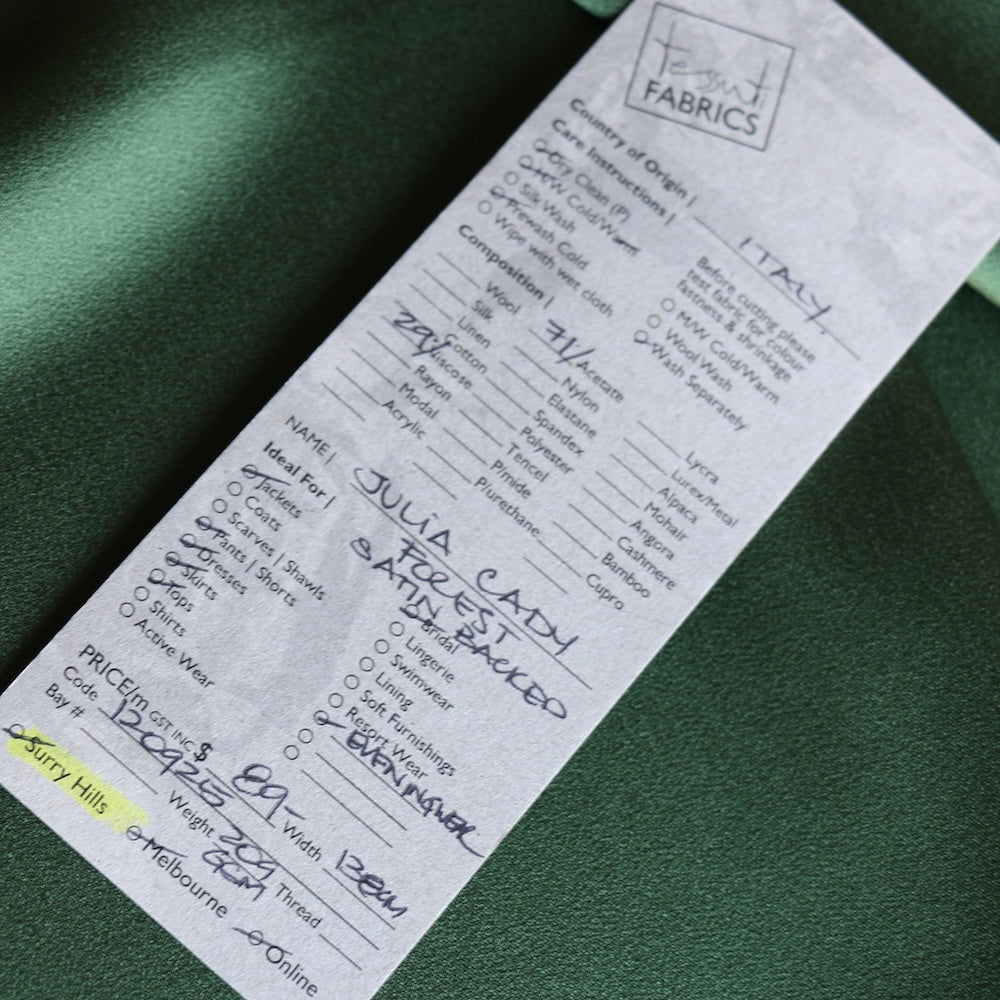 tessuti
FABRICS
Country of Origin | ITALY
Care Instructions |
Dry Clean (P)
H/W Cold/Warm
Silk Wash
Prewash Cold
Wipe with wet cloth
Before cutting please
test fabric for colour
fastness & shrinkage
M/W Cold/Warm
Wool Wash
Wash Separately
Composition |
Wool
Silk
Linen
Cotton
29% Viscose
Rayon
Modal
Acrylic
71% Acetate
Nylon
Elastane
Spandex
Polyester
Tencel
P/mide
P/urethane
Lycra
Lurex/Metal
Alpaca
Mohair
Angora
Cashmere
Bamboo
Cupro
NAME | JULIA CADY
FOREST
SATIN BACKED
Ideal For |
Jackets
Coats
Scarves | Shawls
Pants | Shorts
Dresses
Skirts
Tops
Shirts
Active Wear
Bridal
Lingerie
Swimwear
Lining
Soft Furnishings
Resort Wear
EVENINGWEAR
PRICE/m GST INC $ 89- Width 138cm
Code Weight 209 GSM Thread
Bay #
Surry Hills
Melbourne
Online